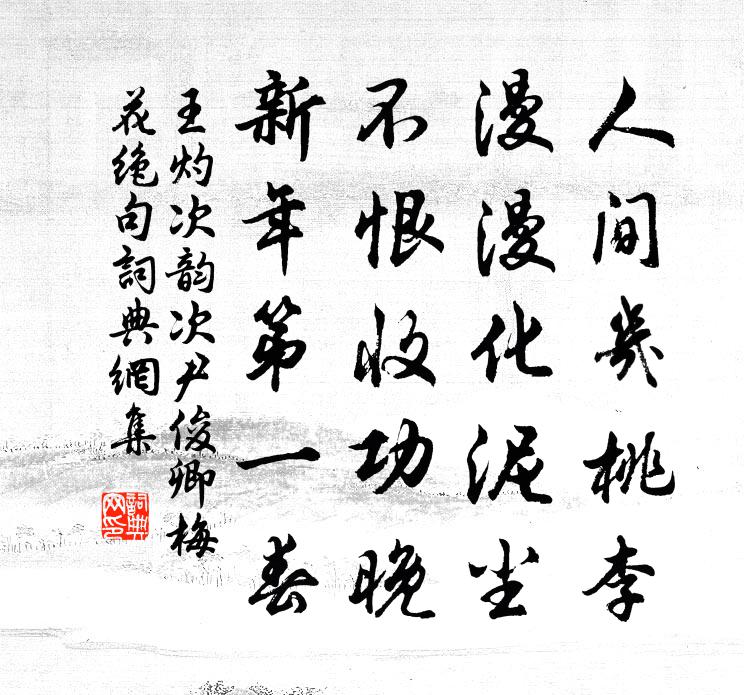 人间几桃李
漫漫化泥尘
不恨收功晚
新年第一春
王灼次韵次尹俊卿梅
花绝句詞典網集
詞典网印